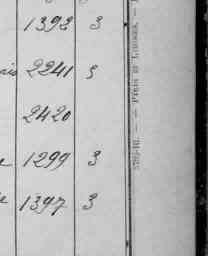 1392 3
2241 5
2420
1299 3
1397 3
PARIS ET LIMOGES. —